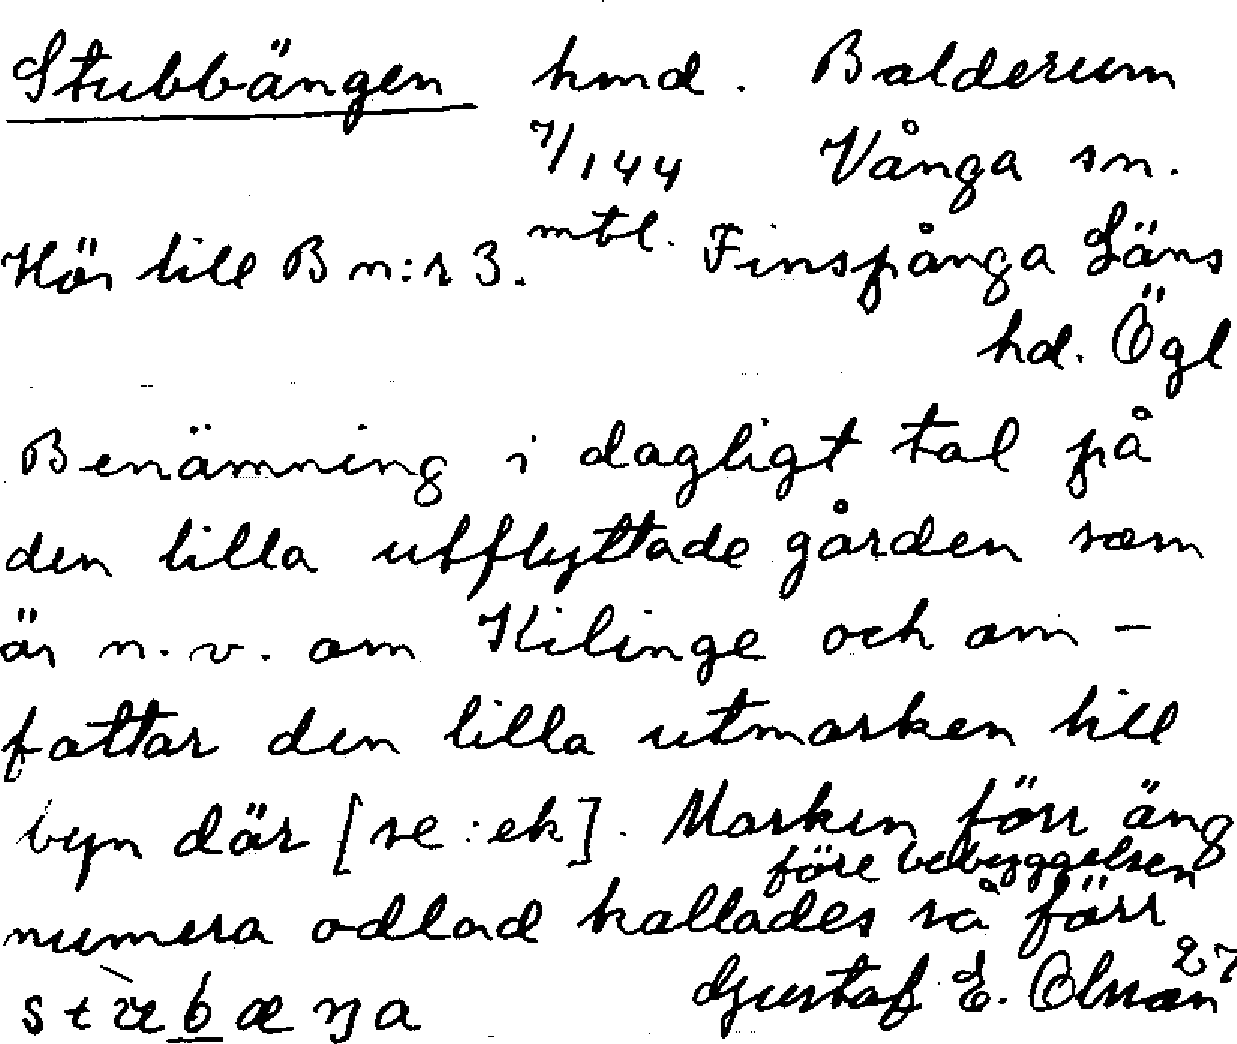 Stubbängen hmd. Balderum
7/144 Vånga sn.
Hör till B n:r 3. mtl. Finspånga Läns
hd. Ögl
Benämning i dagligt tal på
den lilla utflyttade gården som
är n.v. om Kilinge och om-
fattar den lilla utmarken till
byn där [se: ek]. Marken förr äng
före bebyggelsen
numera odlad kallades så förr
Gustaf E. Olsson 27